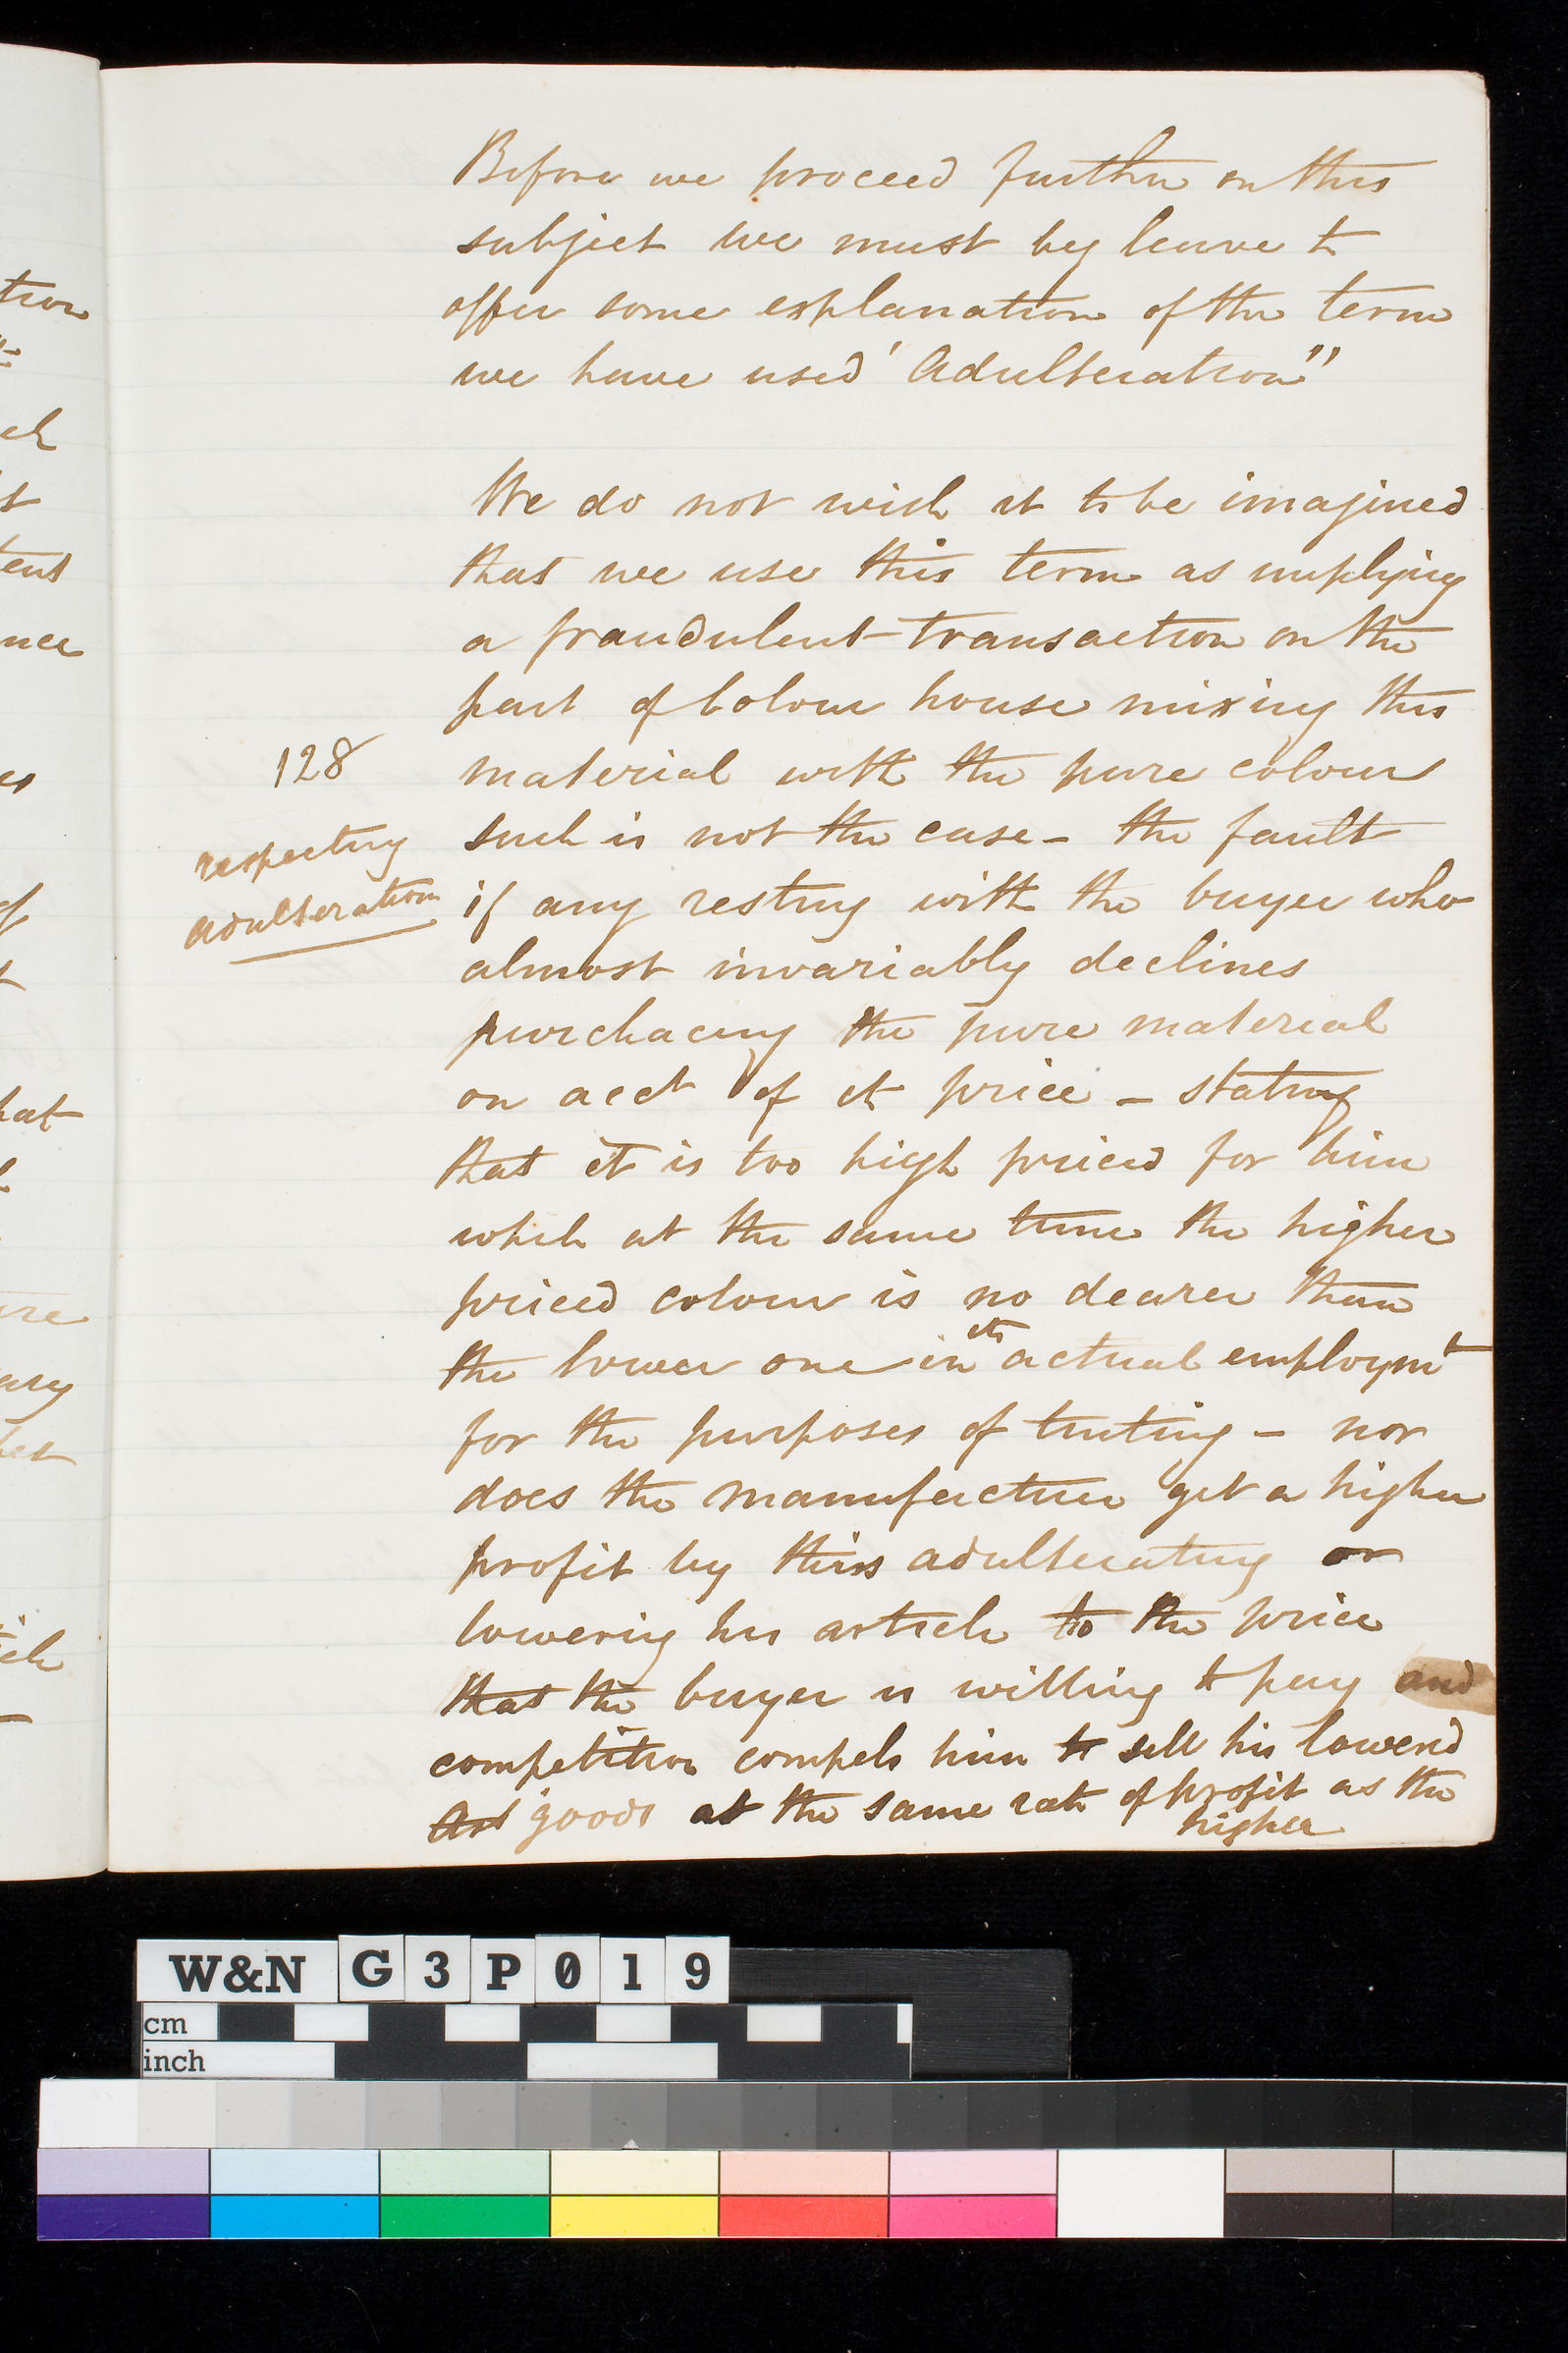 Before we proceed further on this
subject we must beg leave to
offer some explanation of the term
we have used 'Adulteration"
We do not wish it to be imagined
that we use this term as implying
a fraudulent transaction on the
part of Colour house mixing this
128
material with the pure colour
respecting
adulteration
such is not the case – the fault
if any resting with the buyer who
almost invariably declines
purchacing the pure material
on acct of it price – stating
that it is too high priced for him
while at the same time the higher
priced colour is no dearer than
the lower one in its actual employmt
for the purposes of tinting – nor
does the manufacturer get a higher
profit by this adulterating or
lowering his article to the price
that the buyer is willing to pay and
competition compels him to sell his lowered
goods at the same rate of profit as the
higher
W&N G3P019
cm
inch